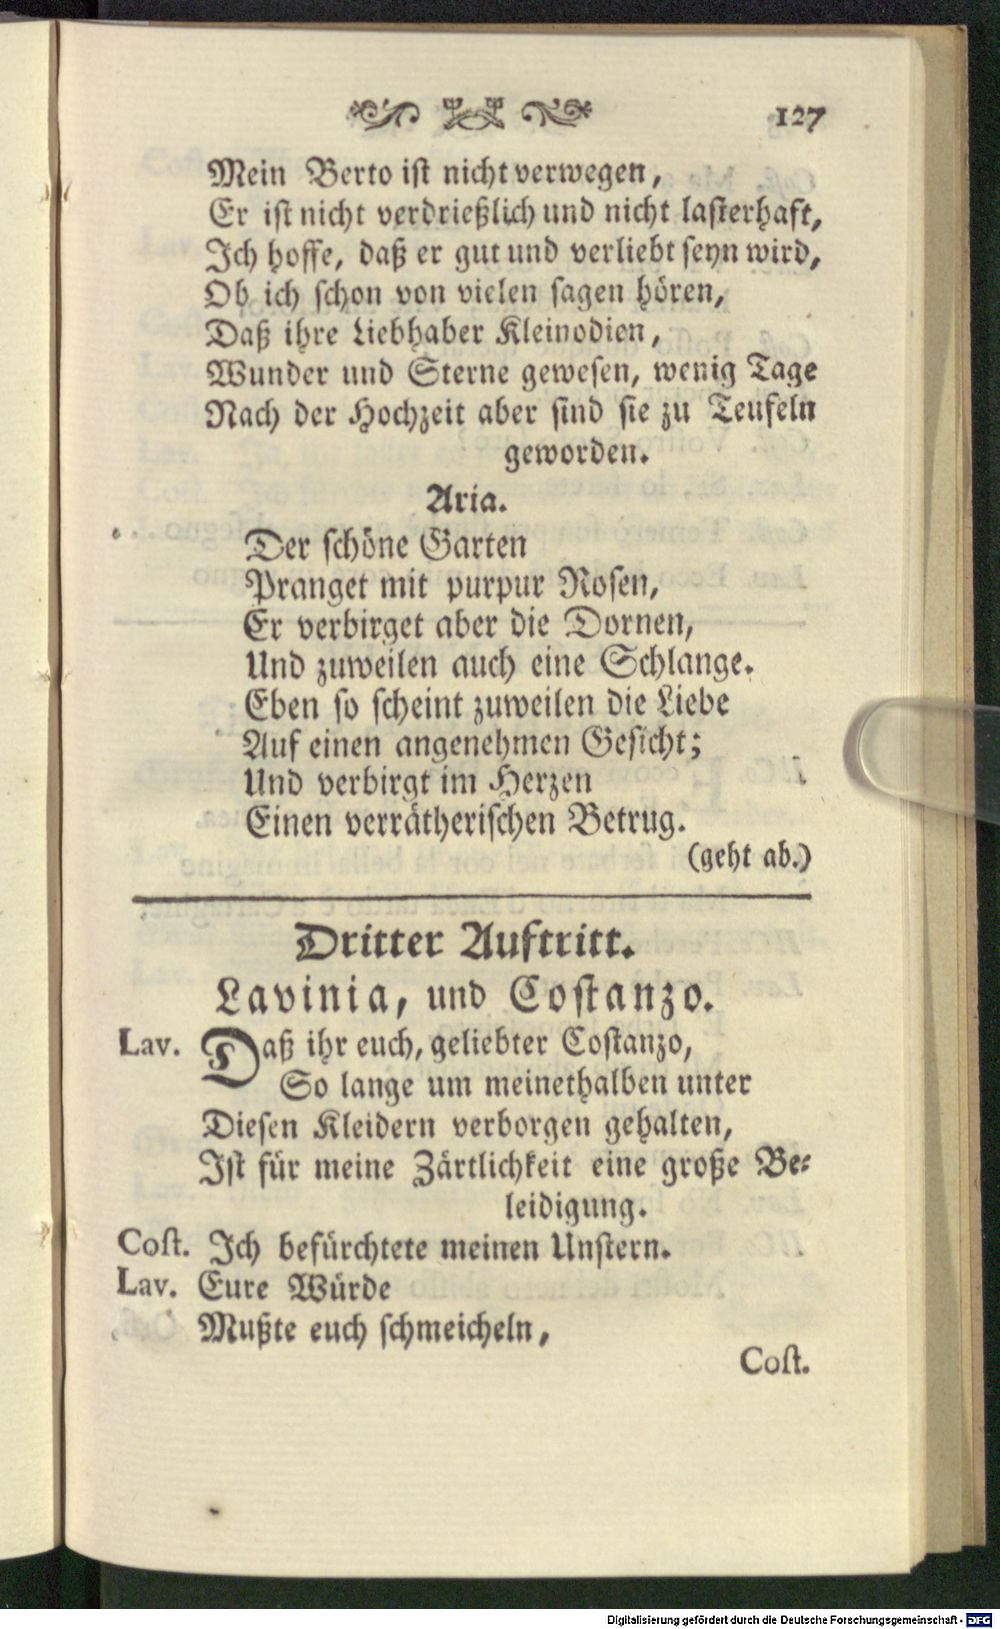 127
Mein Berto ist nicht verwegen,
Er ist nicht verdrießlich und nicht lasterhaft,
Ich hoffe, daß er gut und verliebt seyn wird,
Ob ich schon von vielen sagen hören,
Daß ihre Liebhaber Kleinodien,
Wunder und Sterne gewesen, wenig Tage
Nach der Hochzeit aber sind sie zu Teufeln
geworden.
Aria.
Der schöne Garten
Pranget mit purpur Rosen,
Er verbirget aber die Dornen,
Und zuweilen auch eine Schlange.
Eben so scheint zuweilen die Liebe
Auf einen angenehmen Gesicht;
Und verbirgt im Herzen
Einen verrätherischen Betrug.
(geht ab.)
Dritter Auftritt.
Lavinia, und Costanzo.
Lav. Daß ihr euch, geliebter Costanzo,
So lange um meinethalben unter
Diesen Kleidern verborgen gehalten,
Ist für meine Zärtlichkeit eine große Be-
leidigung.
Cost. Ich befürchtete meinen Unstern.
Lav. Eure Würde
Mußte euch schmeicheln,
Cost.
Digitalisierung gefördert durch die Deutsche Forschungsgemeinschaft - DFG